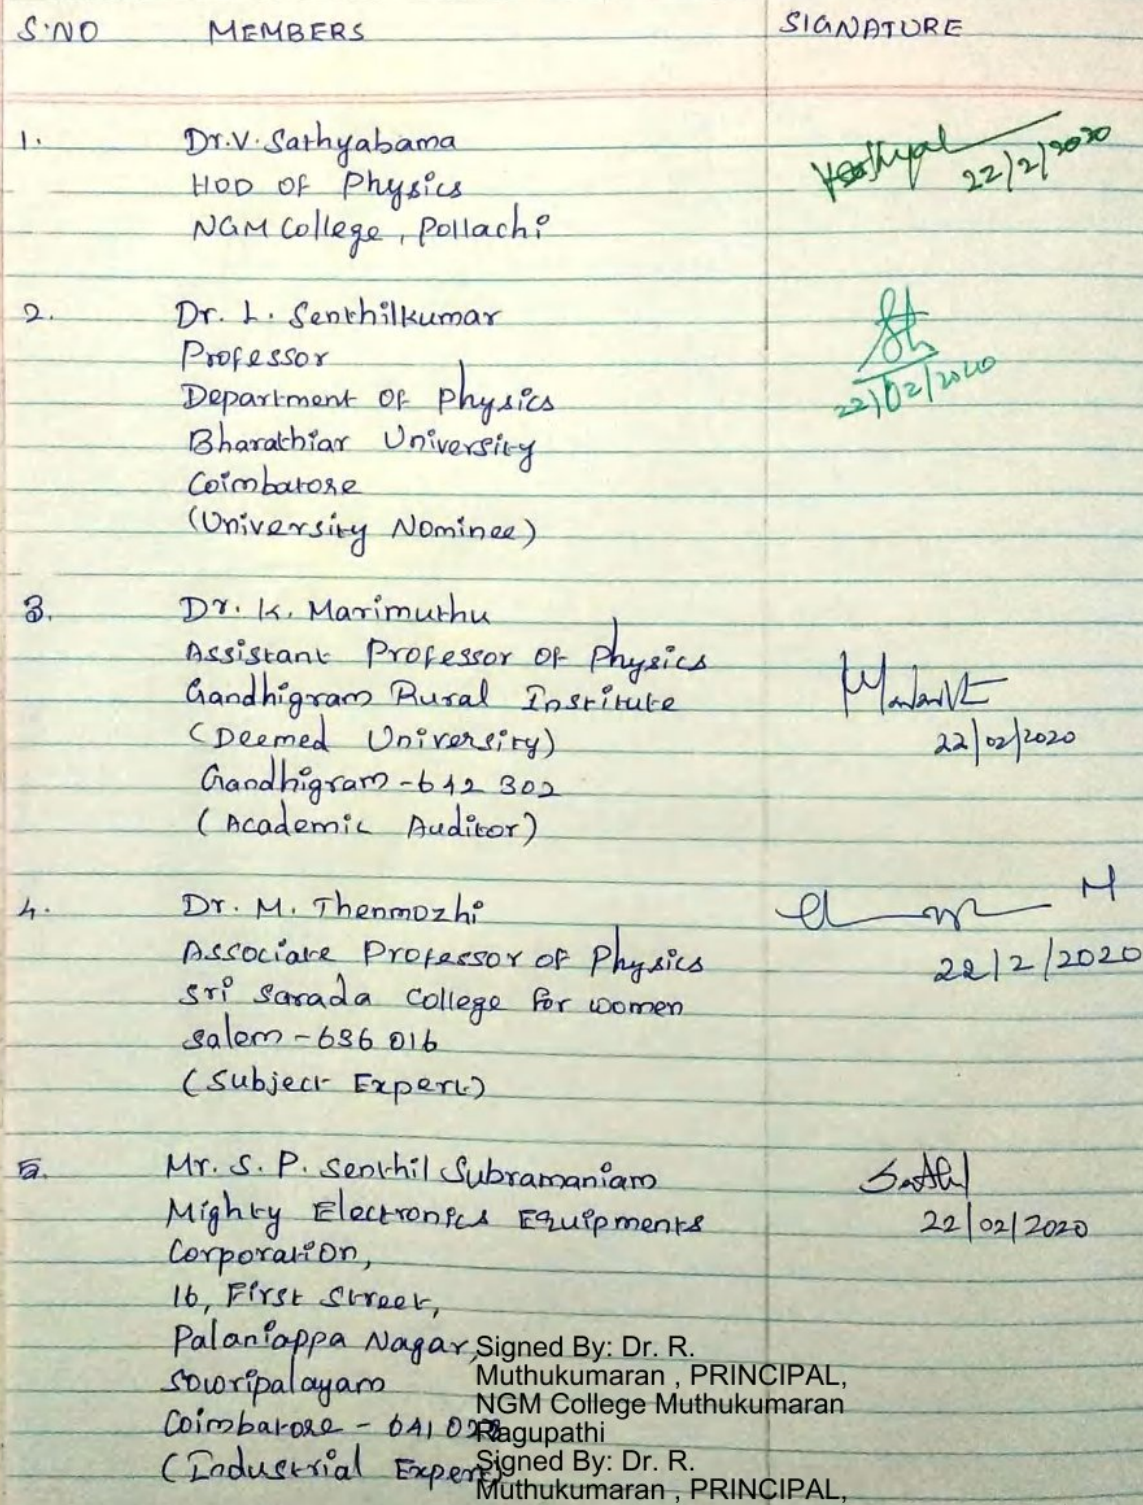 S.NO MEMBERS SIGNATURE
1. Dr.V. Sathyabama
22/2/2020
HOD OF Physics
NGM College, Pollachi
2. Dr. L. Senthilkumar
Professor
22/02/2020
Department OF Physics
Bharathiar University
Coimbatore
(University Nominee)
3. Dr. K. Marimuthu
Assistant Professor OF Physics
Gandhigram Rural Institute
(Deemed University) 22/02/2020
Gandhigram - 642 302
(Academic Auditor)
4. Dr. M. Thenmozhi M
Associate Professor OF Physics 22/2/2020
Sri Sarada College for women
Salem - 636 016
(Subject Expert)
5. Mr. S. P. Senthil Subramaniam
Mighty Electronics Equipments 22/02/2020
Corporation,
16, First Street,
Palaniappa Nagar,
Sowripalayam
Coimbatore - 641
(Industrial Expert)
Signed By: Dr. R.
Muthukumaran , PRINCIPAL,
NGM College Muthukumaran
Ragupathi
Signed By: Dr. R.
Muthukumaran , PRINCIPAL,